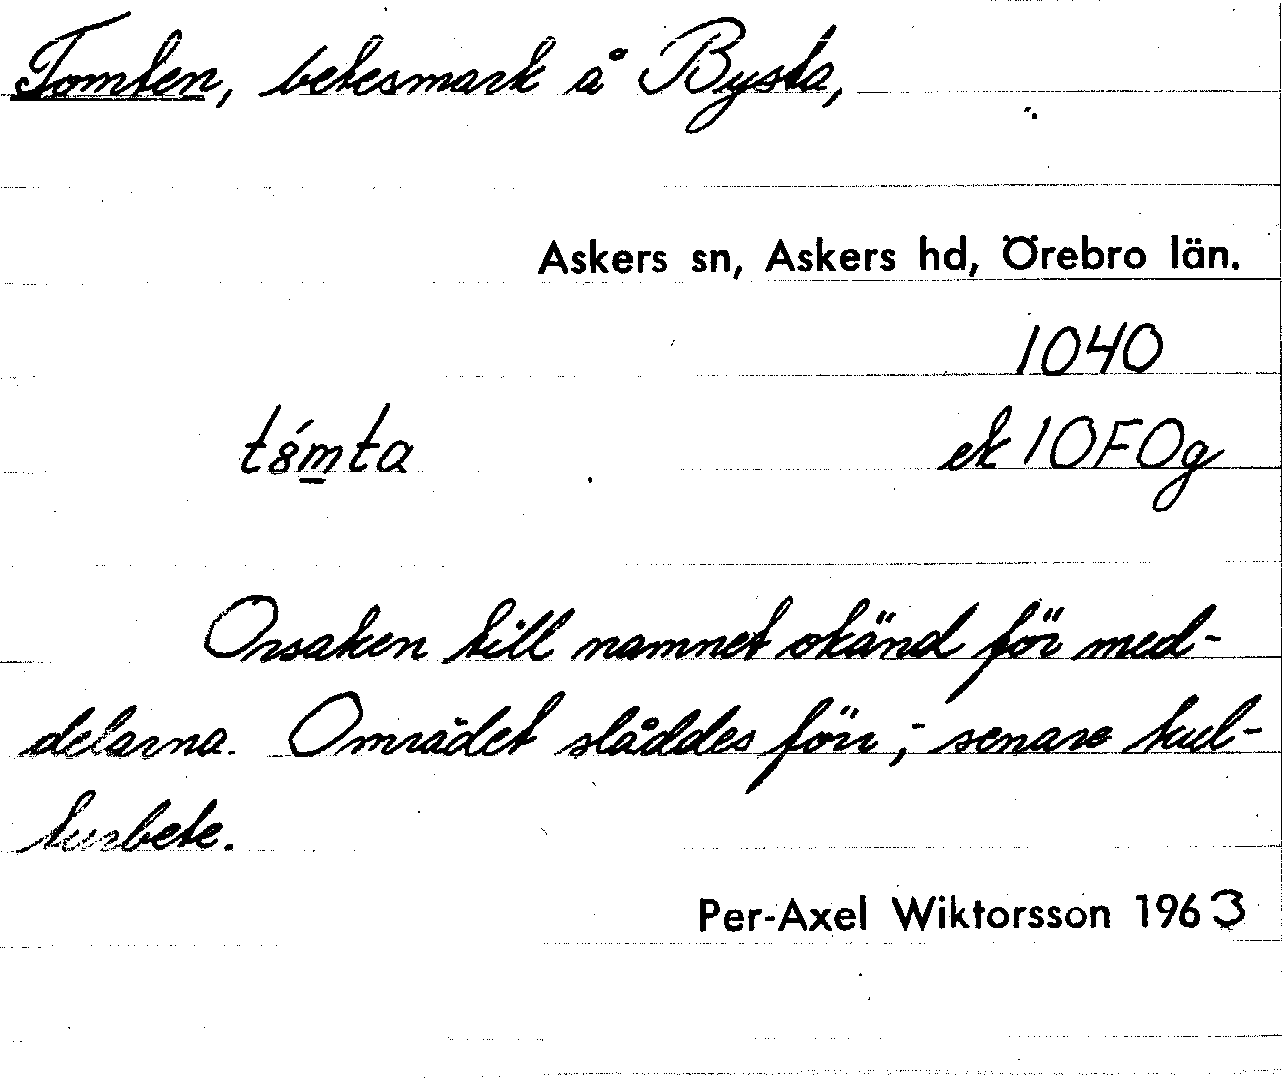 Tomten, betesmark å Bysta,
Askers sn, Askers hd, Örebro län.
1040
t8́m̲ta ek 10F0g
Orsaken till namnet okänd för med-
delarna. Området slåddes förr, - senare kul-
turbete.
Per-Axel Wiktorsson 1963